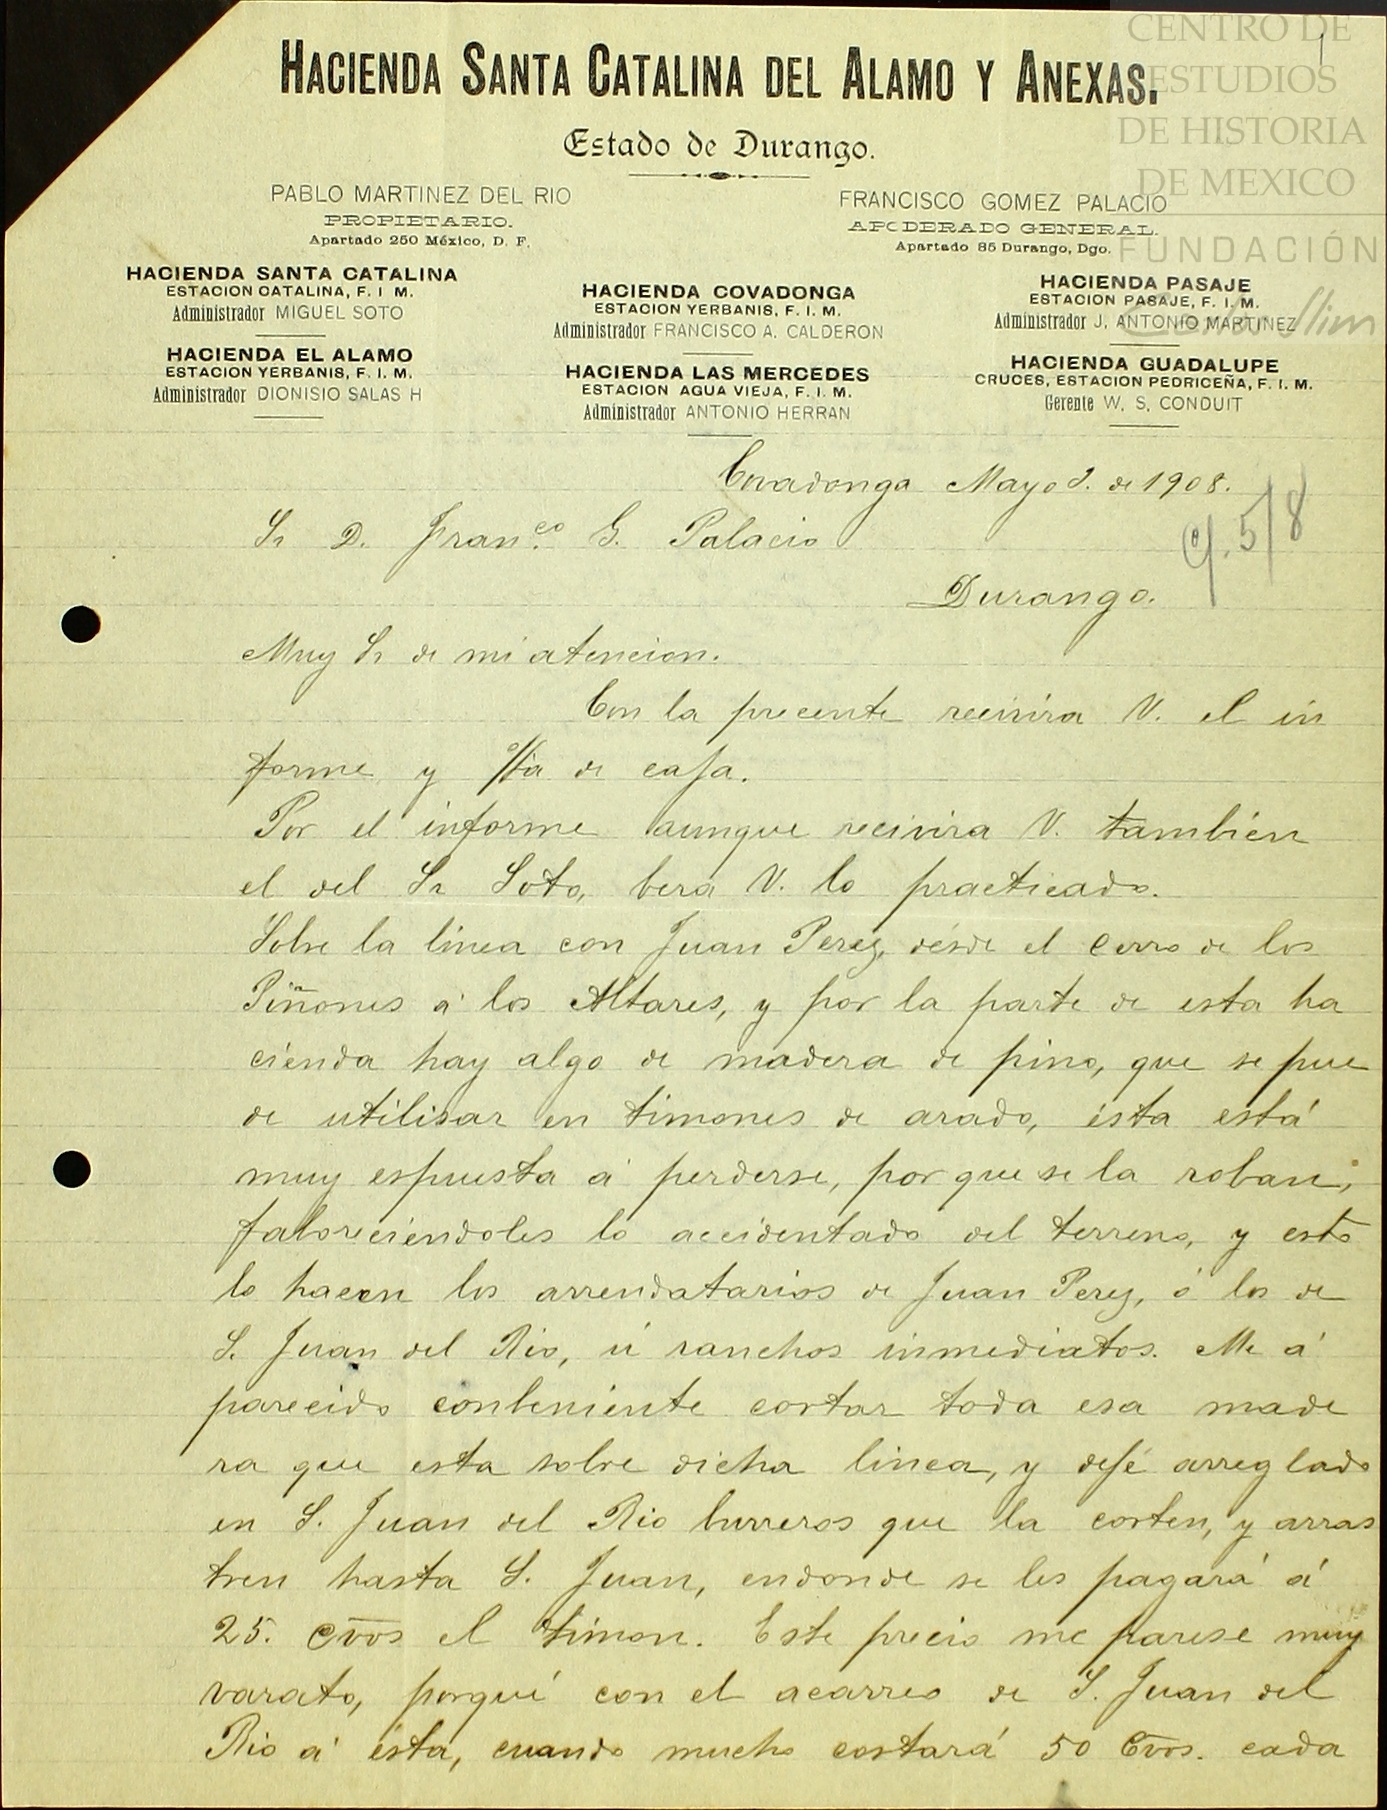 CENTRO DE
ESTUDIOS
DE HISTORIA
DE MEXICO
FUNDACIÓN
Carlos Slim
HACIENDA SANTA CATALINA DEL ALAMO Y ANEXAS.
Estado de Durango.
PABLO MARTINEZ DEL RIO
PROPIETARIO.
Apartado 250 México, D. F.
FRANCISCO GOMEZ PALACIO
APODERADO GENERAL.
Apartado 85 Durango, Dgo.
HACIENDA SANTA CATALINA
ESTACION CATALINA, F. I M.
Administrador MIGUEL SOTO
HACIENDA EL ALAMO
ESTACION YERBANIS, F. I. M.
Administrador DIONISIO SALAS H
HACIENDA COVADONGA
ESTACION YERBANIS, F. I. M.
Administrador FRANCISCO A. CALDERON
HACIENDA LAS MERCEDES
ESTACION AGUA VIEJA, F. I. M.
Administrador ANTONIO HERRAN
HACIENDA PASAJE
ESTACION PASAJE, F. I. M.
Administrador J. ANTONIO MARTINEZ
HACIENDA GUADALUPE
CRUCES, ESTACION PEDRICEÑA, F. I. M.
Gerente W. S. CONDUIT
Covadonga Mayo de 1908.
5/8
Sr D. Fran.co G. Palacio
Durango.
Muy Sr de mi atencion.
Con la precente recivira V. el in
forme y c/ta de caja.
Por el informe aunque recivira V. también
el del Sr Soto, bera V. lo practicado.
Sobre la linea con Juan Perez, désde el cerro de los
Piñones á los Altares, y por la parte de esta ha
cienda hay algo de madera de pino, que se pue
de utilisar en timones de arado, ésta está
muy espuesta á perderse, por que se la roban;
faboreciéndoles lo accidentado del terreno, y esto
lo hacen los arrendatarios de Juan Perez, ó los de
S. Juan del Rio, ú ranchos inmediatos. Me á
parecido conbeniente cortar toda esa made
ra que esta sobre dicha linea, y dejé arreglado
en S. Juan del Rio burreros que la corten, y arras
tren hasta S. Juan, endonde se les pagará á
25. cvos el timon. Este precio me parese muy
varato, porqué con el acarreo de S. Juan del
Rio á ésta, cuando mucho costará 50 Cvos. cada